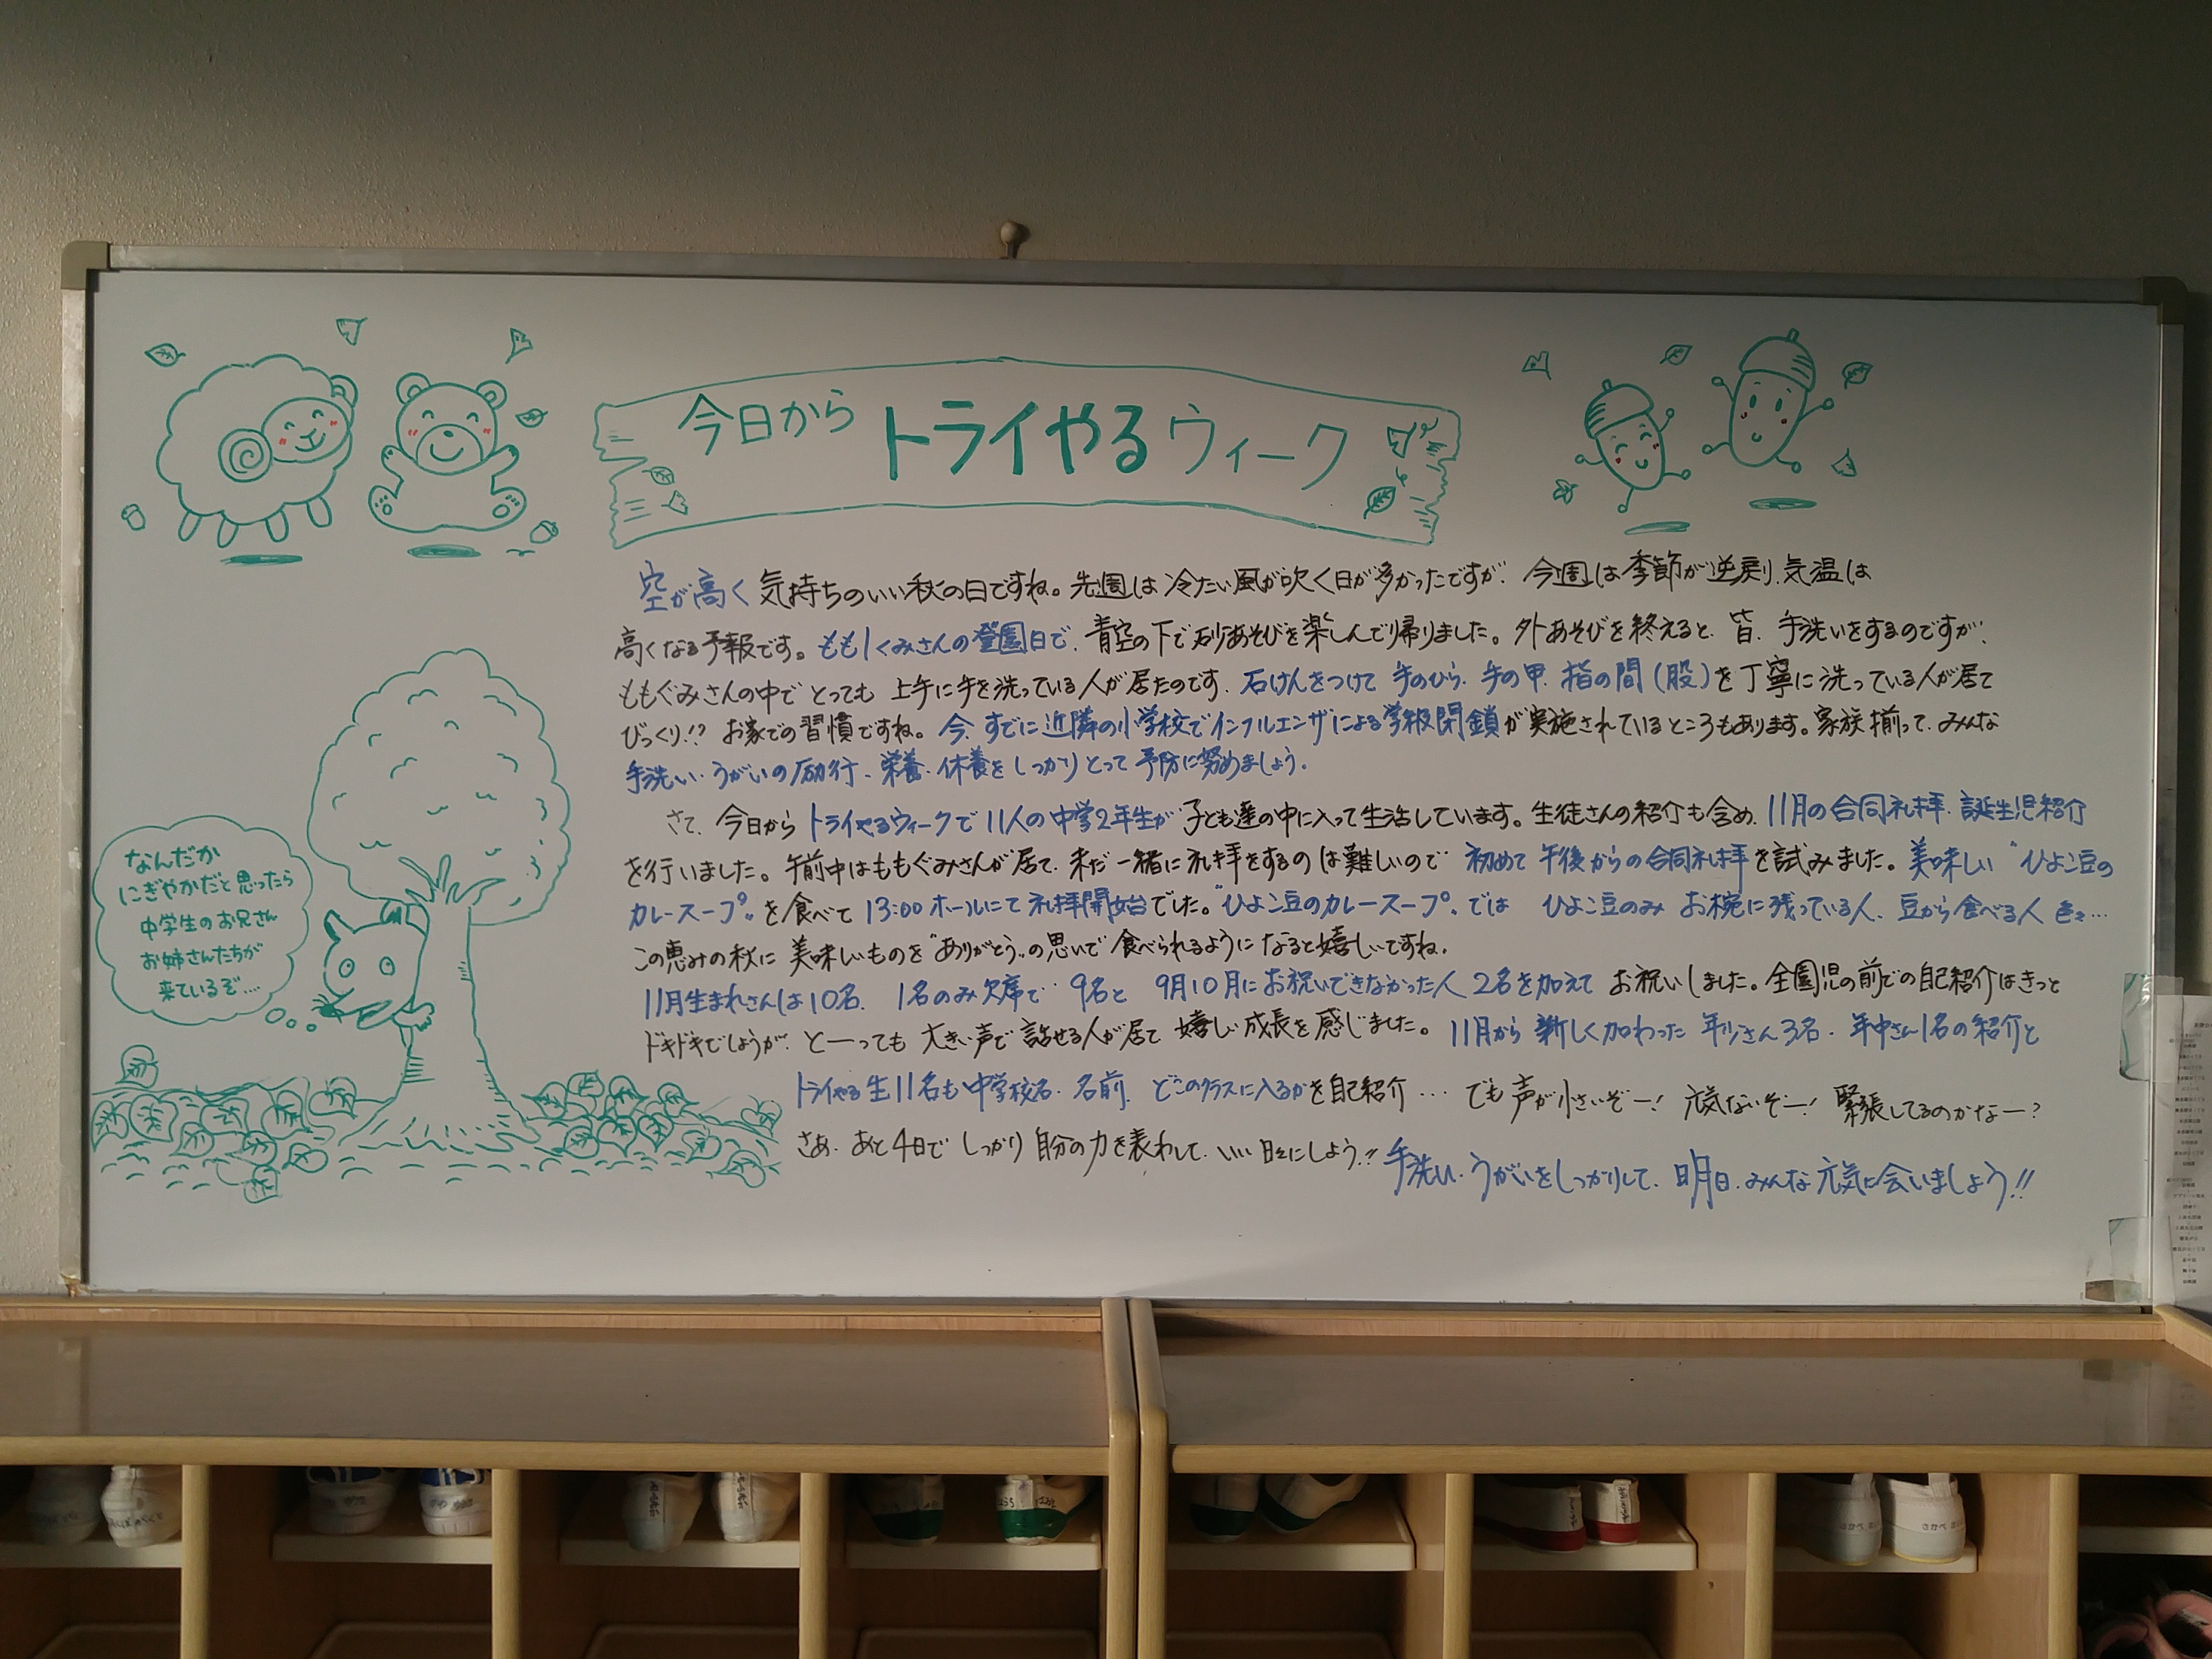 今日から トライやる ウィーク
空が高く 気持ちのいい秋の日ですね。先週は冷たい風が吹く日が多かったですが、今週は季節が逆戻り、気温は
高くなる予報です。もも1くみさんの登園日で、青空の下で砂あそびを楽しんで帰りました。外あそびを終えると、皆、手洗いをするのですが、
ももぐみさんの中で とっても 上手に手を洗っている人が居たのです。石けんをつけて 手のひら、手の甲、指の間(股)を丁寧に洗っている人が居て
びっくり!? お家での習慣ですね。今、すでに近隣の小学校でインフルエンザによる学級閉鎖が実施されているところもあります。家族揃って、みんな
手洗い、うがいの励行、栄養、休養をしっかりとって 予防に努めましょう。
さて、今日から トライやるウィークで 11人の中学2年生が 子ども達の中に入って生活しています。生徒さんの紹介も含め、11月の合同礼拝、誕生児紹介
を行いました。午前中はももぐみさんが居て、未だ一緒に礼拝をするのは難しいので 初めて 午後からの合同礼拝を試みました。美味しい "ひよこ豆の
カレースープ"を食べて 13:00 ホールにて礼拝開始でした。"ひよこ豆のカレースープ"では ひよこ豆のみ お椀に残っている人、豆から食べる人 色々…
この恵みの秋に 美味しいものを"ありがとう"の思いで 食べられるようになると嬉しいですね。
11月生まれさんは10名、1名のみ欠席で 9名と 9月10月にお祝いできなかった人 2名を加えて お祝いしました。全園児の前での自己紹介はきっと
ドキドキでしょうが、とーっても 大きい声で 話せる人が居て 嬉しい成長を感じました。11月から 新しく加わった 年少さん3名、年中さん1名の紹介と
トライやる生11名も中学校名、名前、どこのクラスに入るかを自己紹介… でも 声が小さいぞー! 元気ないぞー! 緊張してるのかなー?
さあ、あと4日で しっかり 自分の力を表わして、いい日々にしよう!! 手洗い、うがいをしっかりして、明日、みんな元気に会いましょう!!
なんだか
にぎやかだと思ったら
中学生のお兄さん
お姉さんたちが
来ているぞ…
さかべ